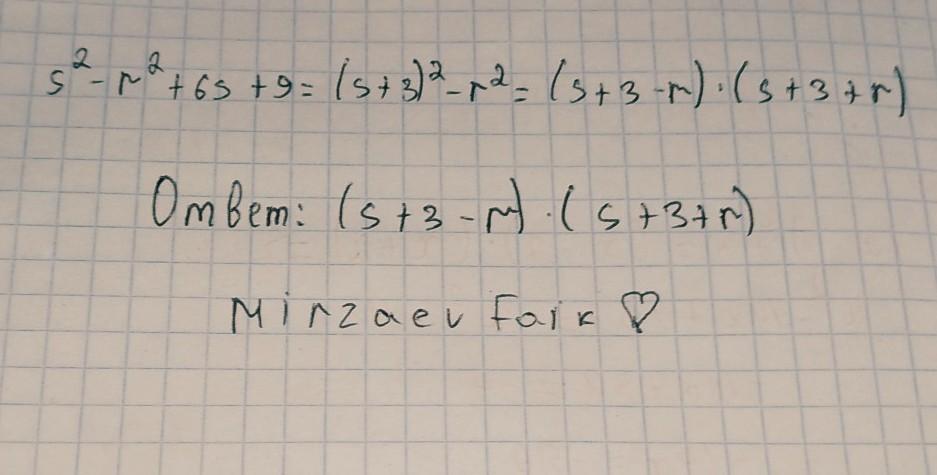 s² - r² + 6s + 9 = (s+3)² - r² = (s+3-r)·(s+3+r)
Ответ: (s+3-r)·(s+3+r)
Mirzaev Faik ♡